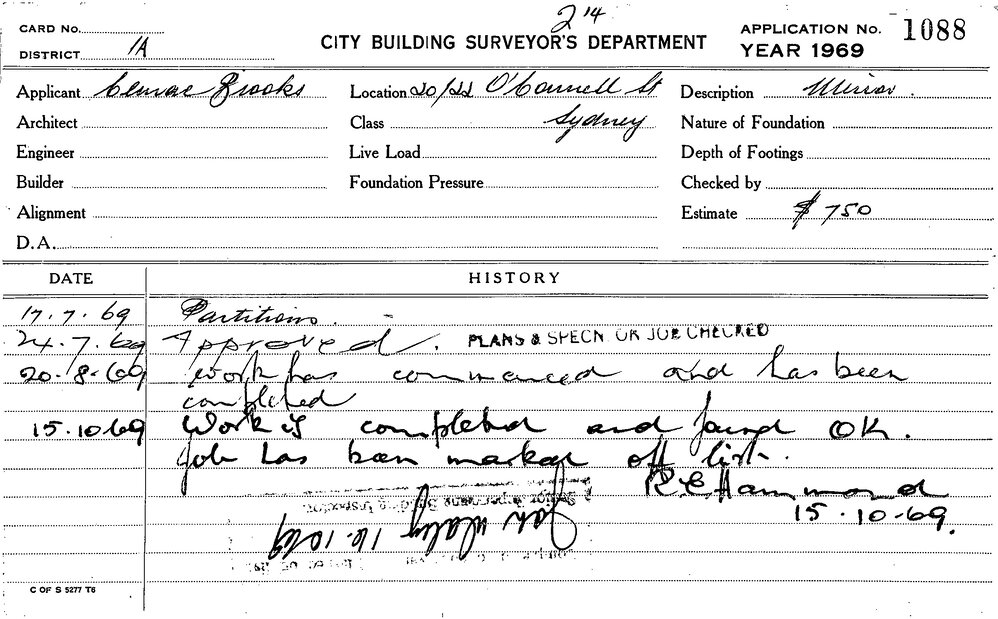 2 14
CARD No.
DISTRICT 1A
CITY BUILDING SURVEYOR'S DEPARTMENT
APPLICATION No. 1088
YEAR 1969
Applicant Brooks Location 20/22 O'Connell St Description Minor.
Architect Class Sydney Nature of Foundation
Engineer Live Load Depth of Footings
Builder Foundation Pressure Checked by
Alignment Estimate $ 750
D.A.
DATE HISTORY
17.7.69 Partitions.
24.7.69 Approved. PLANS & SPECN. OR JOB CHECKED
20.8.69 Work has commenced and has been
completed
15.10.69 Work is completed and found OK.
Job has been marked off list.
R C Hammond
15.10.69.
Senior Building Inspector
16.10.69
C OF S 5277 T6